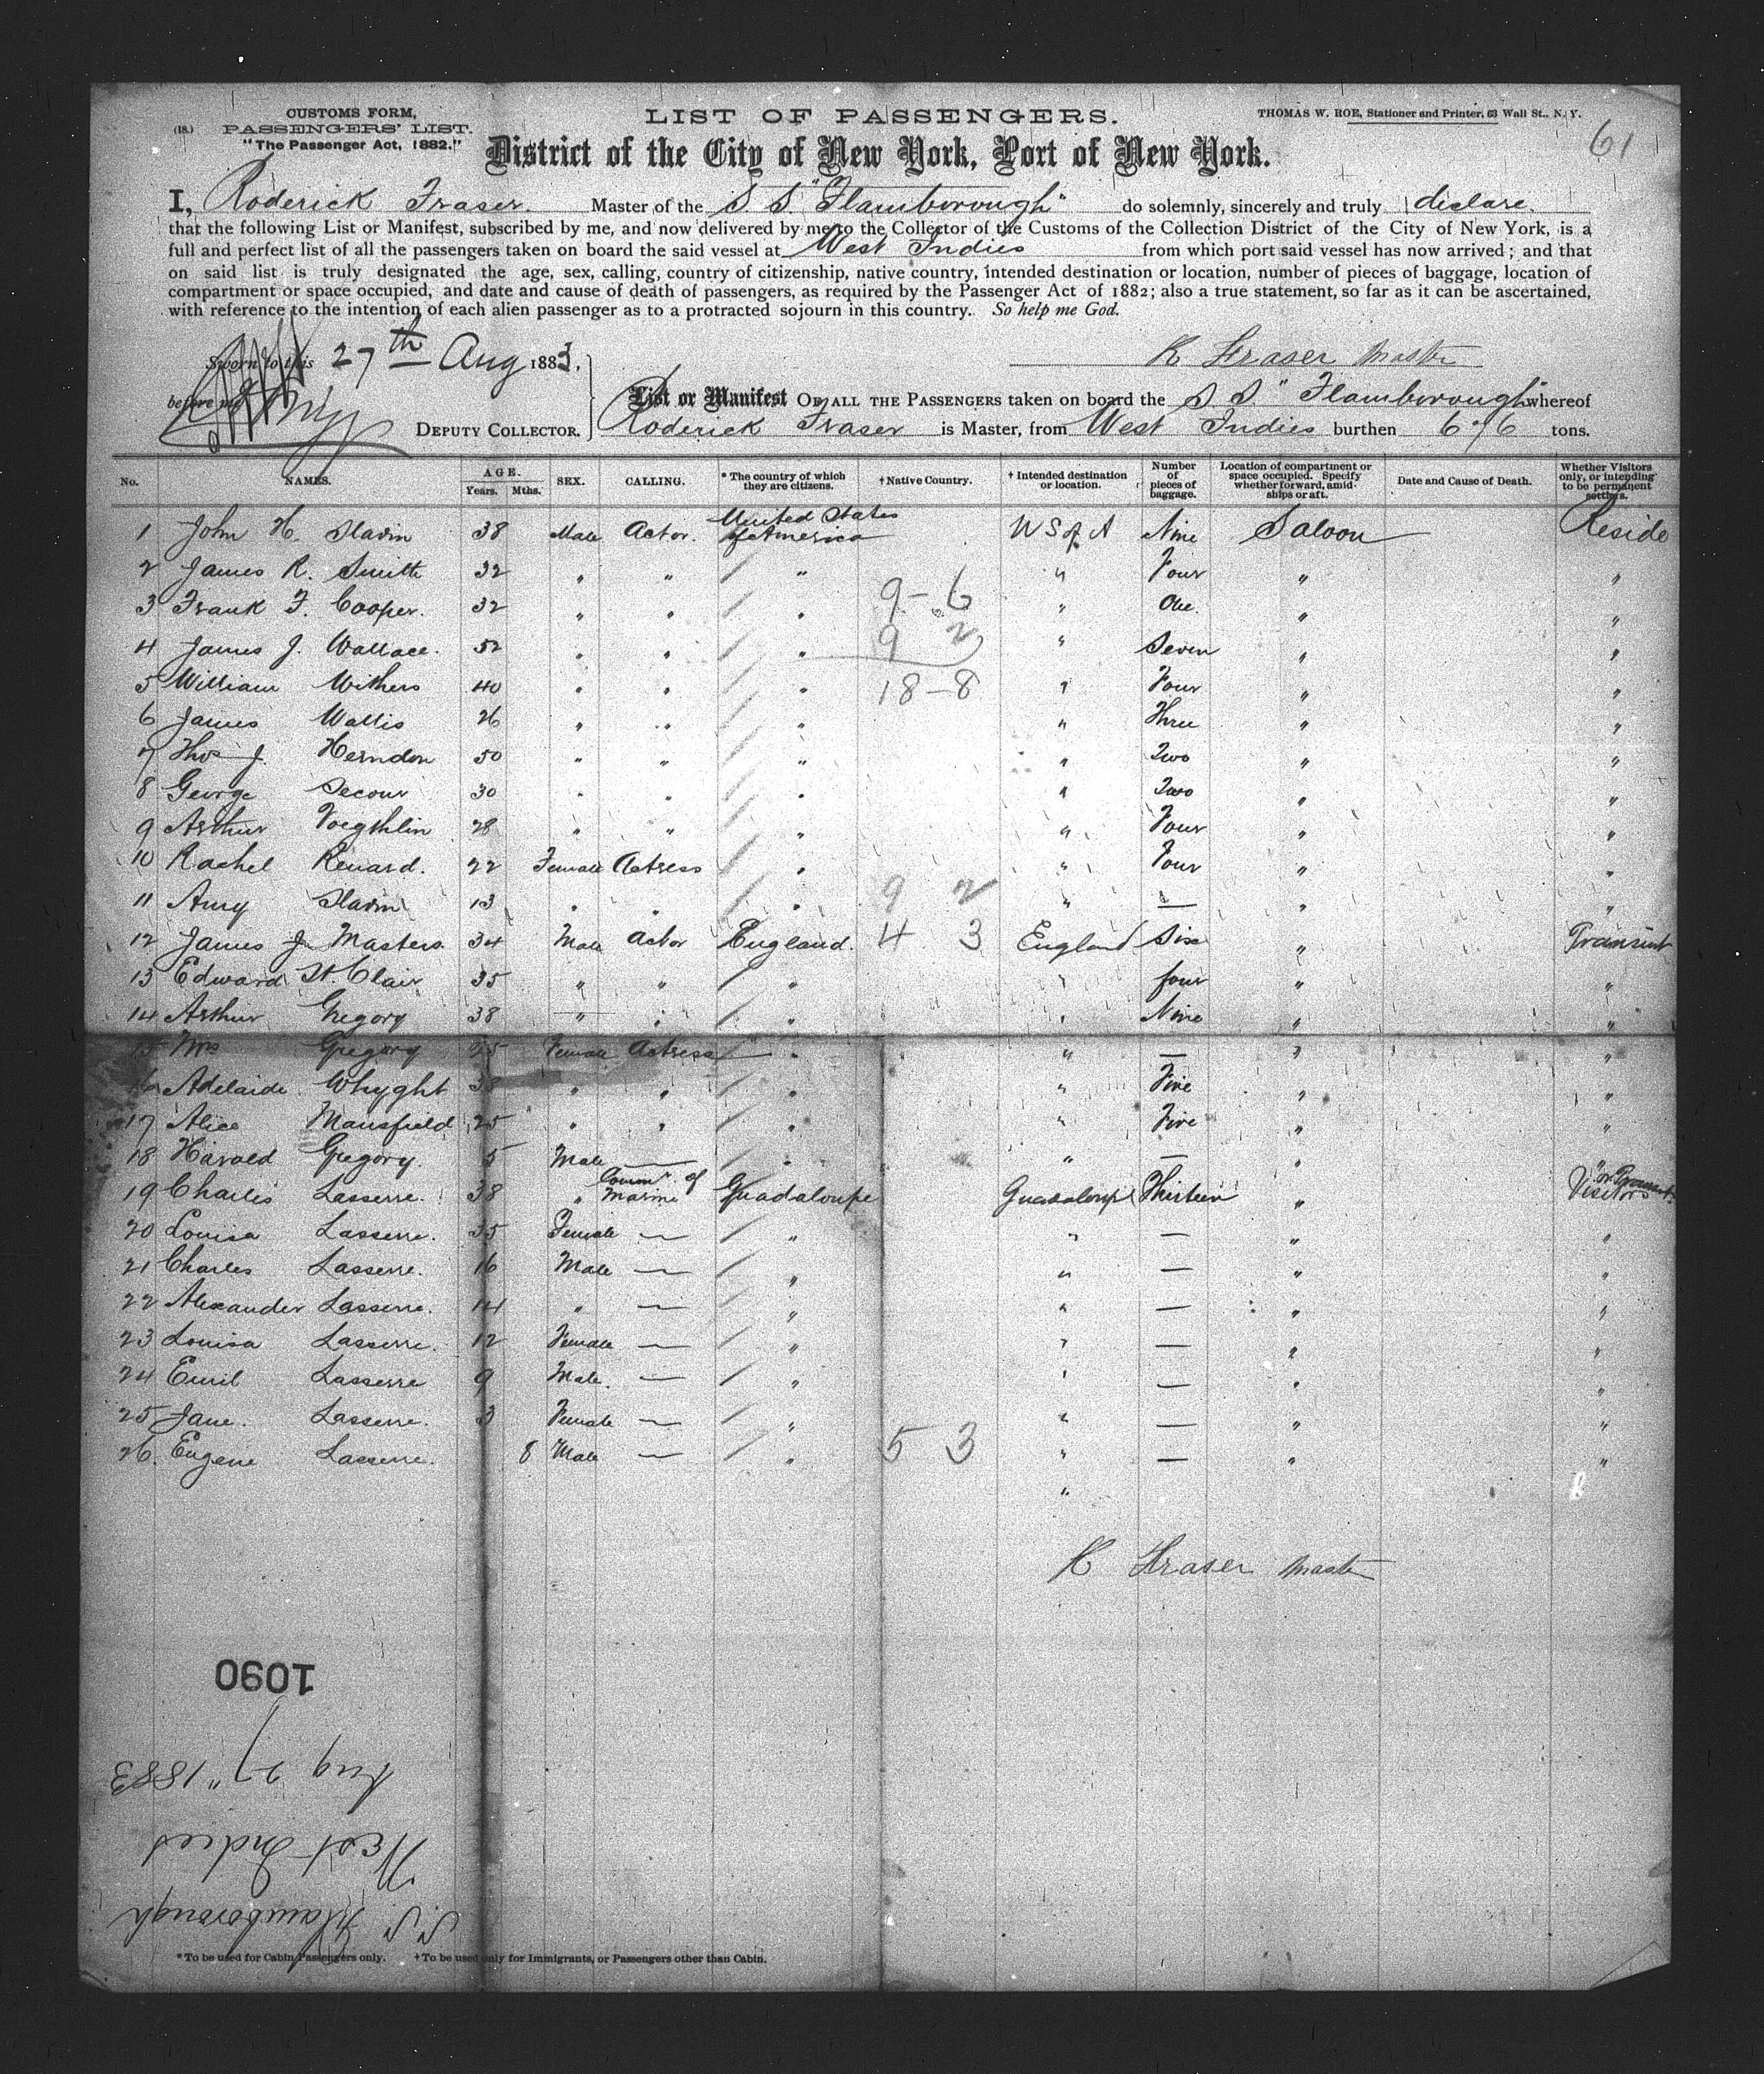 CUSTOMS FORM,
(18.) PASSENGERS' LIST.
"The Passenger Act, 1882."
LIST OF PASSENGERS.
THOMAS W. ROE, Stationer and Printer, 63 Wall St., N. Y.
61
District of the City of New York, Port of New York.
I, Roderick Fraser. Master of the S. S. "Flamborough" do solemnly, sincerely and truly declare.
that the following List or Manifest, subscribed by me, and now delivered by me to the Collector of the Customs of the Collection District of the City of New York, is a
full and perfect list of all the passengers taken on board the said vessel at West Indies from which port said vessel has now arrived; and that
on said list is truly designated the age, sex, calling, country of citizenship, native country, intended destination or location, number of pieces of baggage, location of
compartment or space occupied, and date and cause of death of passengers, as required by the Passenger Act of 1882; also a true statement, so far as it can be ascertained,
with reference to the intention of each alien passenger as to a protracted sojourn in this country. So help me God.
Sworn to this 27th Aug 1883,
R Fraser master
before me
DEPUTY COLLECTOR.
List or Manifest OF ALL THE PASSENGERS taken on board the S S "Flamborough" whereof
Roderick Fraser is Master, from West Indies burthen 676 tons.
No. NAMES. AGE. Years. Mths. SEX. CALLING. * The country of which they are citizens. † Native Country. † Intended destination or location. Number of pieces of baggage. Location of compartment or space occupied. Specify whether forward, amidships or aft. Date and Cause of Death. Whether Visitors only, or intending to be permanent settlers.
1 John H. Slavin 38 Male Actor. United States of America U S of A Nine Saloon Reside
2 James R. Smith 32 " " " " Four " "
3 Frank F. Cooper. 32 " " " 9-6 " One. " "
4 James J. Wallace. 52 " " " 9 2 " Seven " "
5 William Withers 40 " " " 18-8 " Four " "
6 James Wallis 26 " " " " Three " "
7 Thos J. Herndon 50 " " " " Two " "
8 George Secour 30 " " " " Two " "
9 Arthur Voegthlin 28 " " " " Four " "
10 Rachel Renard. 22 Female Actress " " Four " "
11 Amy Slavin 13 " " " 9 2 " — " "
12 James J. Masters 34 Male Actor England. 4 3 England Six " Transint
13 Edward St. Clair 35 " " " " four " "
14 Arthur Gregory 38 " " " " Nine " "
15 Mrs Gregory 25 Female Actress " " — " "
16 Adelaide Whyght 38 " " " " Five " "
17 Alice Mansfield 25 " " " " Five " "
18 Harold Gregory. 5 Male — " " — " "
19 Charles Lasserre. 38 " Commr of Marine Guadaloupe Guadaloupe Thirteen " Visitors or Transint
20 Louisa Lasserre. 35 Female — " " — " "
21 Charles Lasserre. 16 Male — " " — " "
22 Alexander Lasserre. 14 " — " " — " "
23 Louisa Lasserre. 12 Female — " " — " "
24 Emil Lasserre 9 Male. — " " — " "
25 Jane. Lasserre. 3 Female — " " — " "
26. Eugene Lasserre. 8 Male — " 5 3 " — " "
"
R Fraser master
1090
Aug 27" 1883
West Indies
S. S. Flamborough
* To be used for Cabin Passengers only. † To be used only for Immigrants, or Passengers other than Cabin.